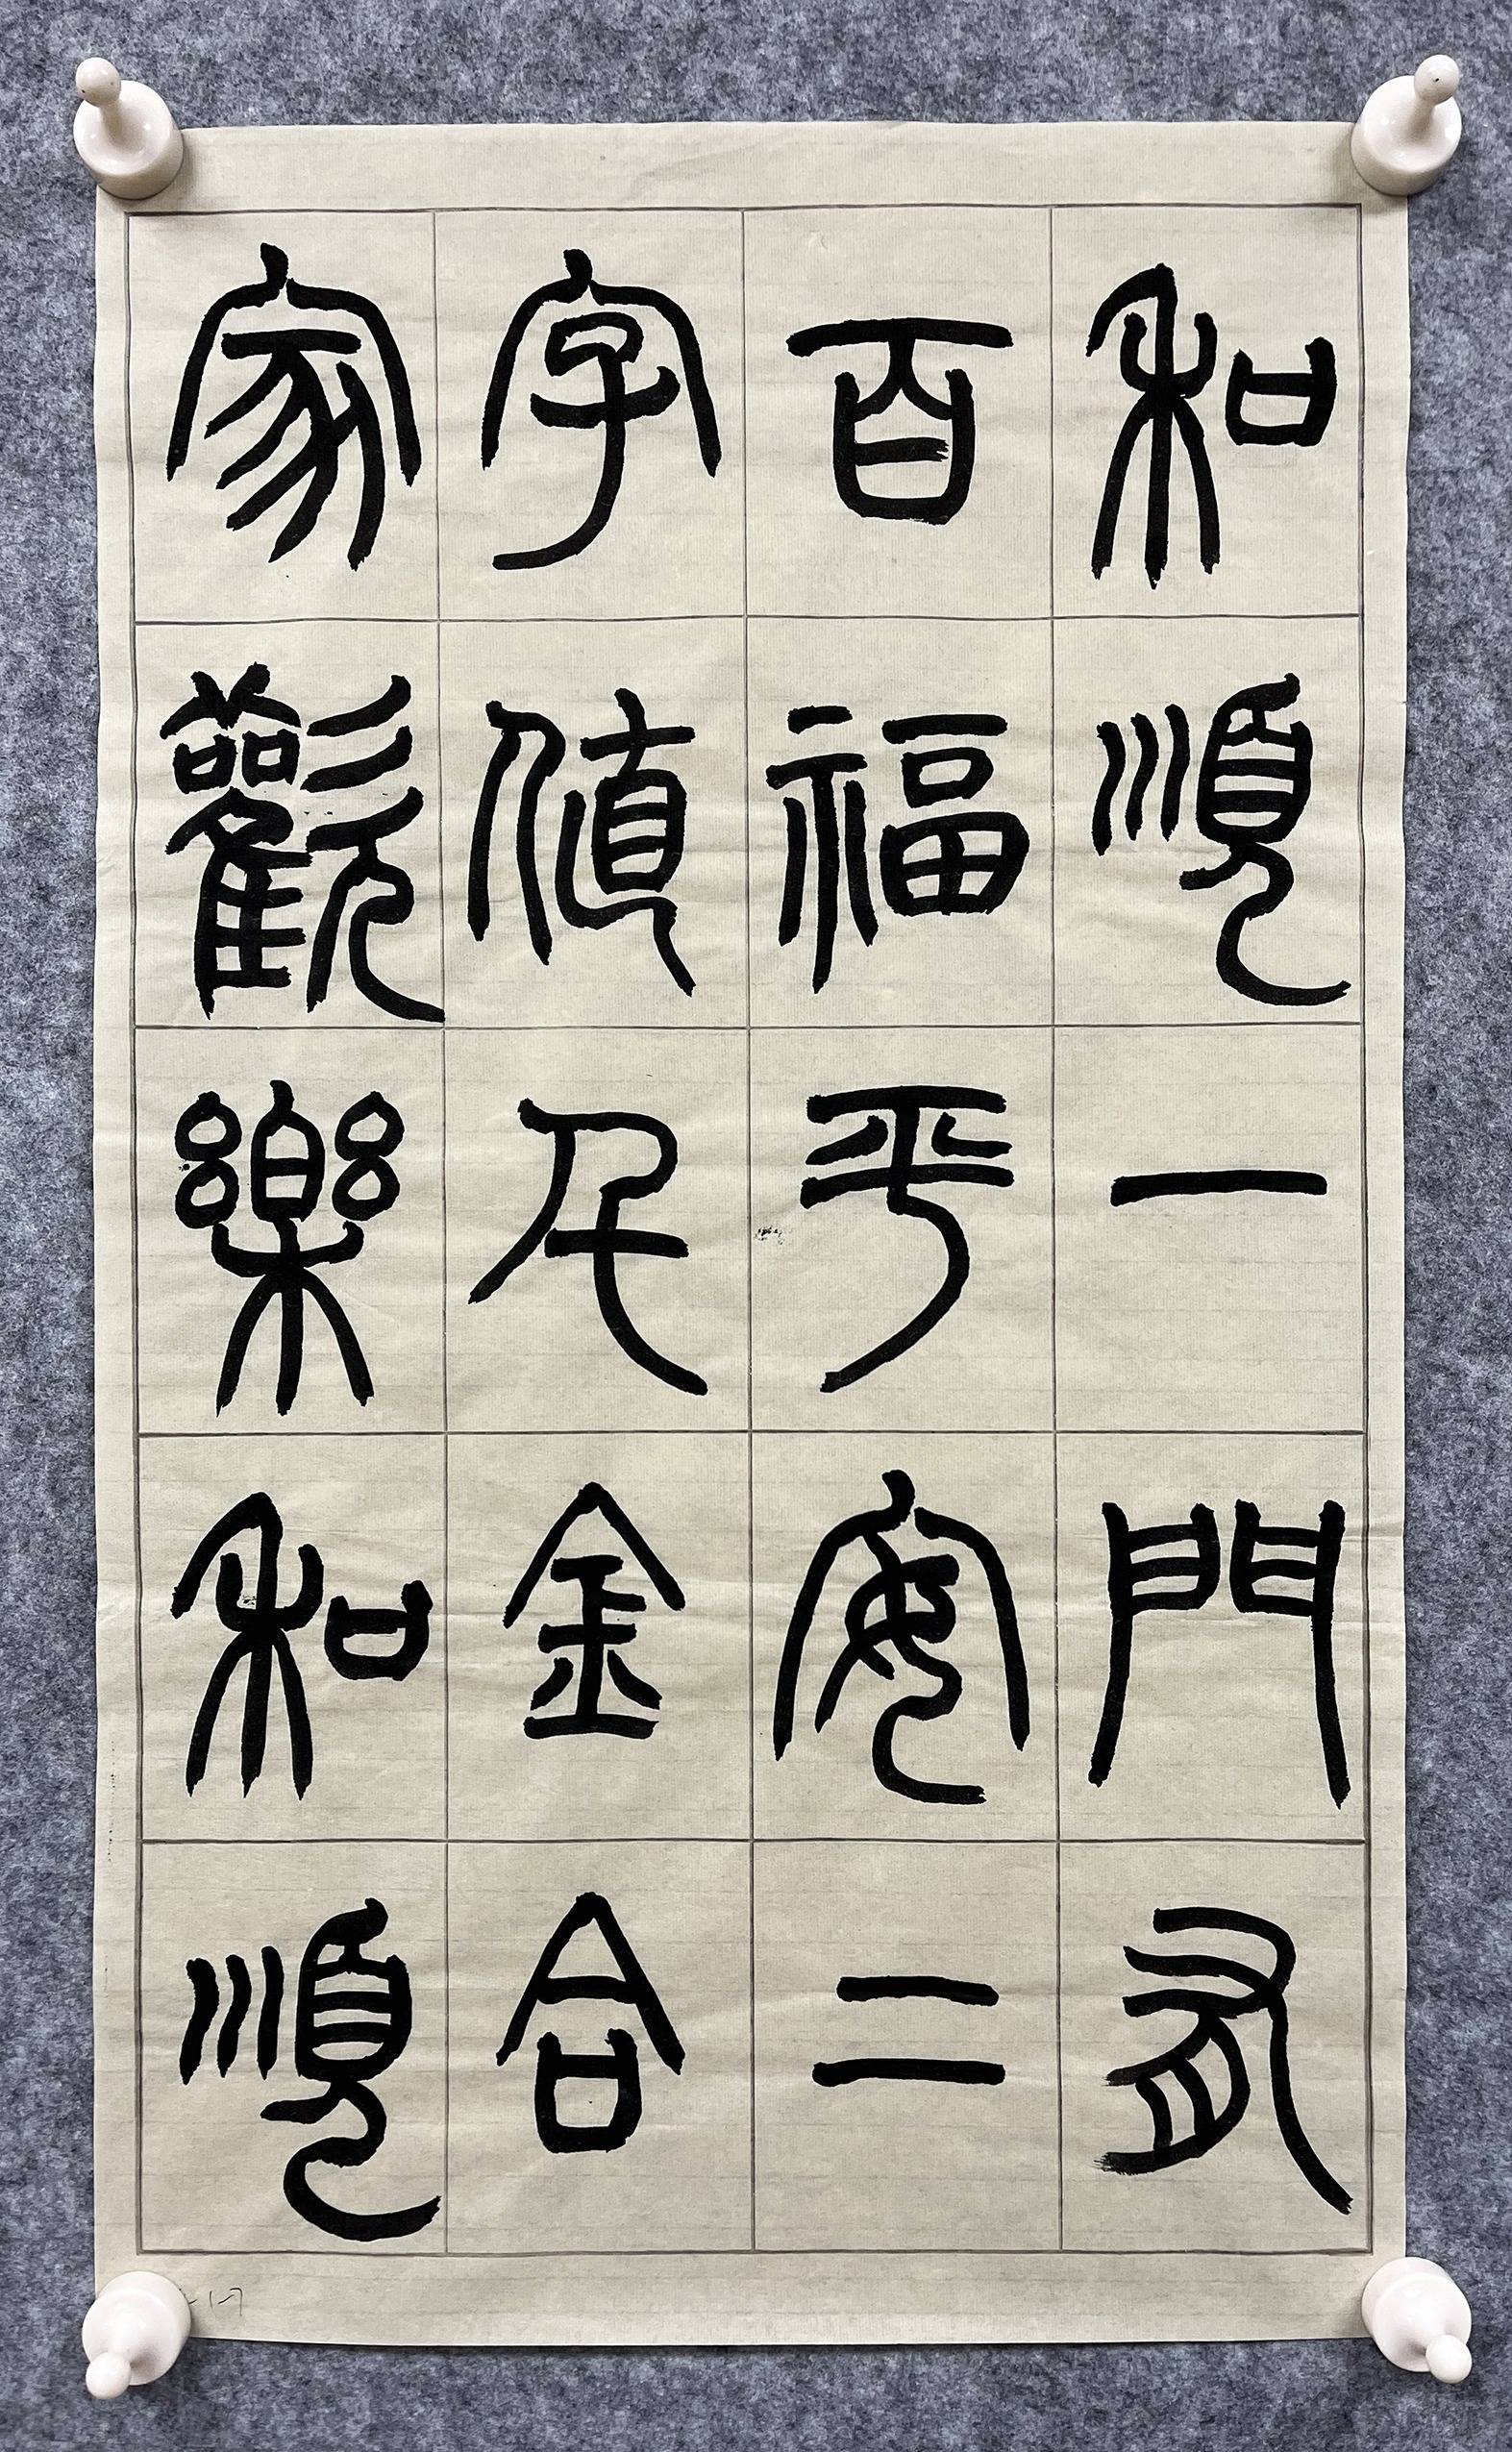 和順一門有
百福平安二
字值千金合
家歡樂和順